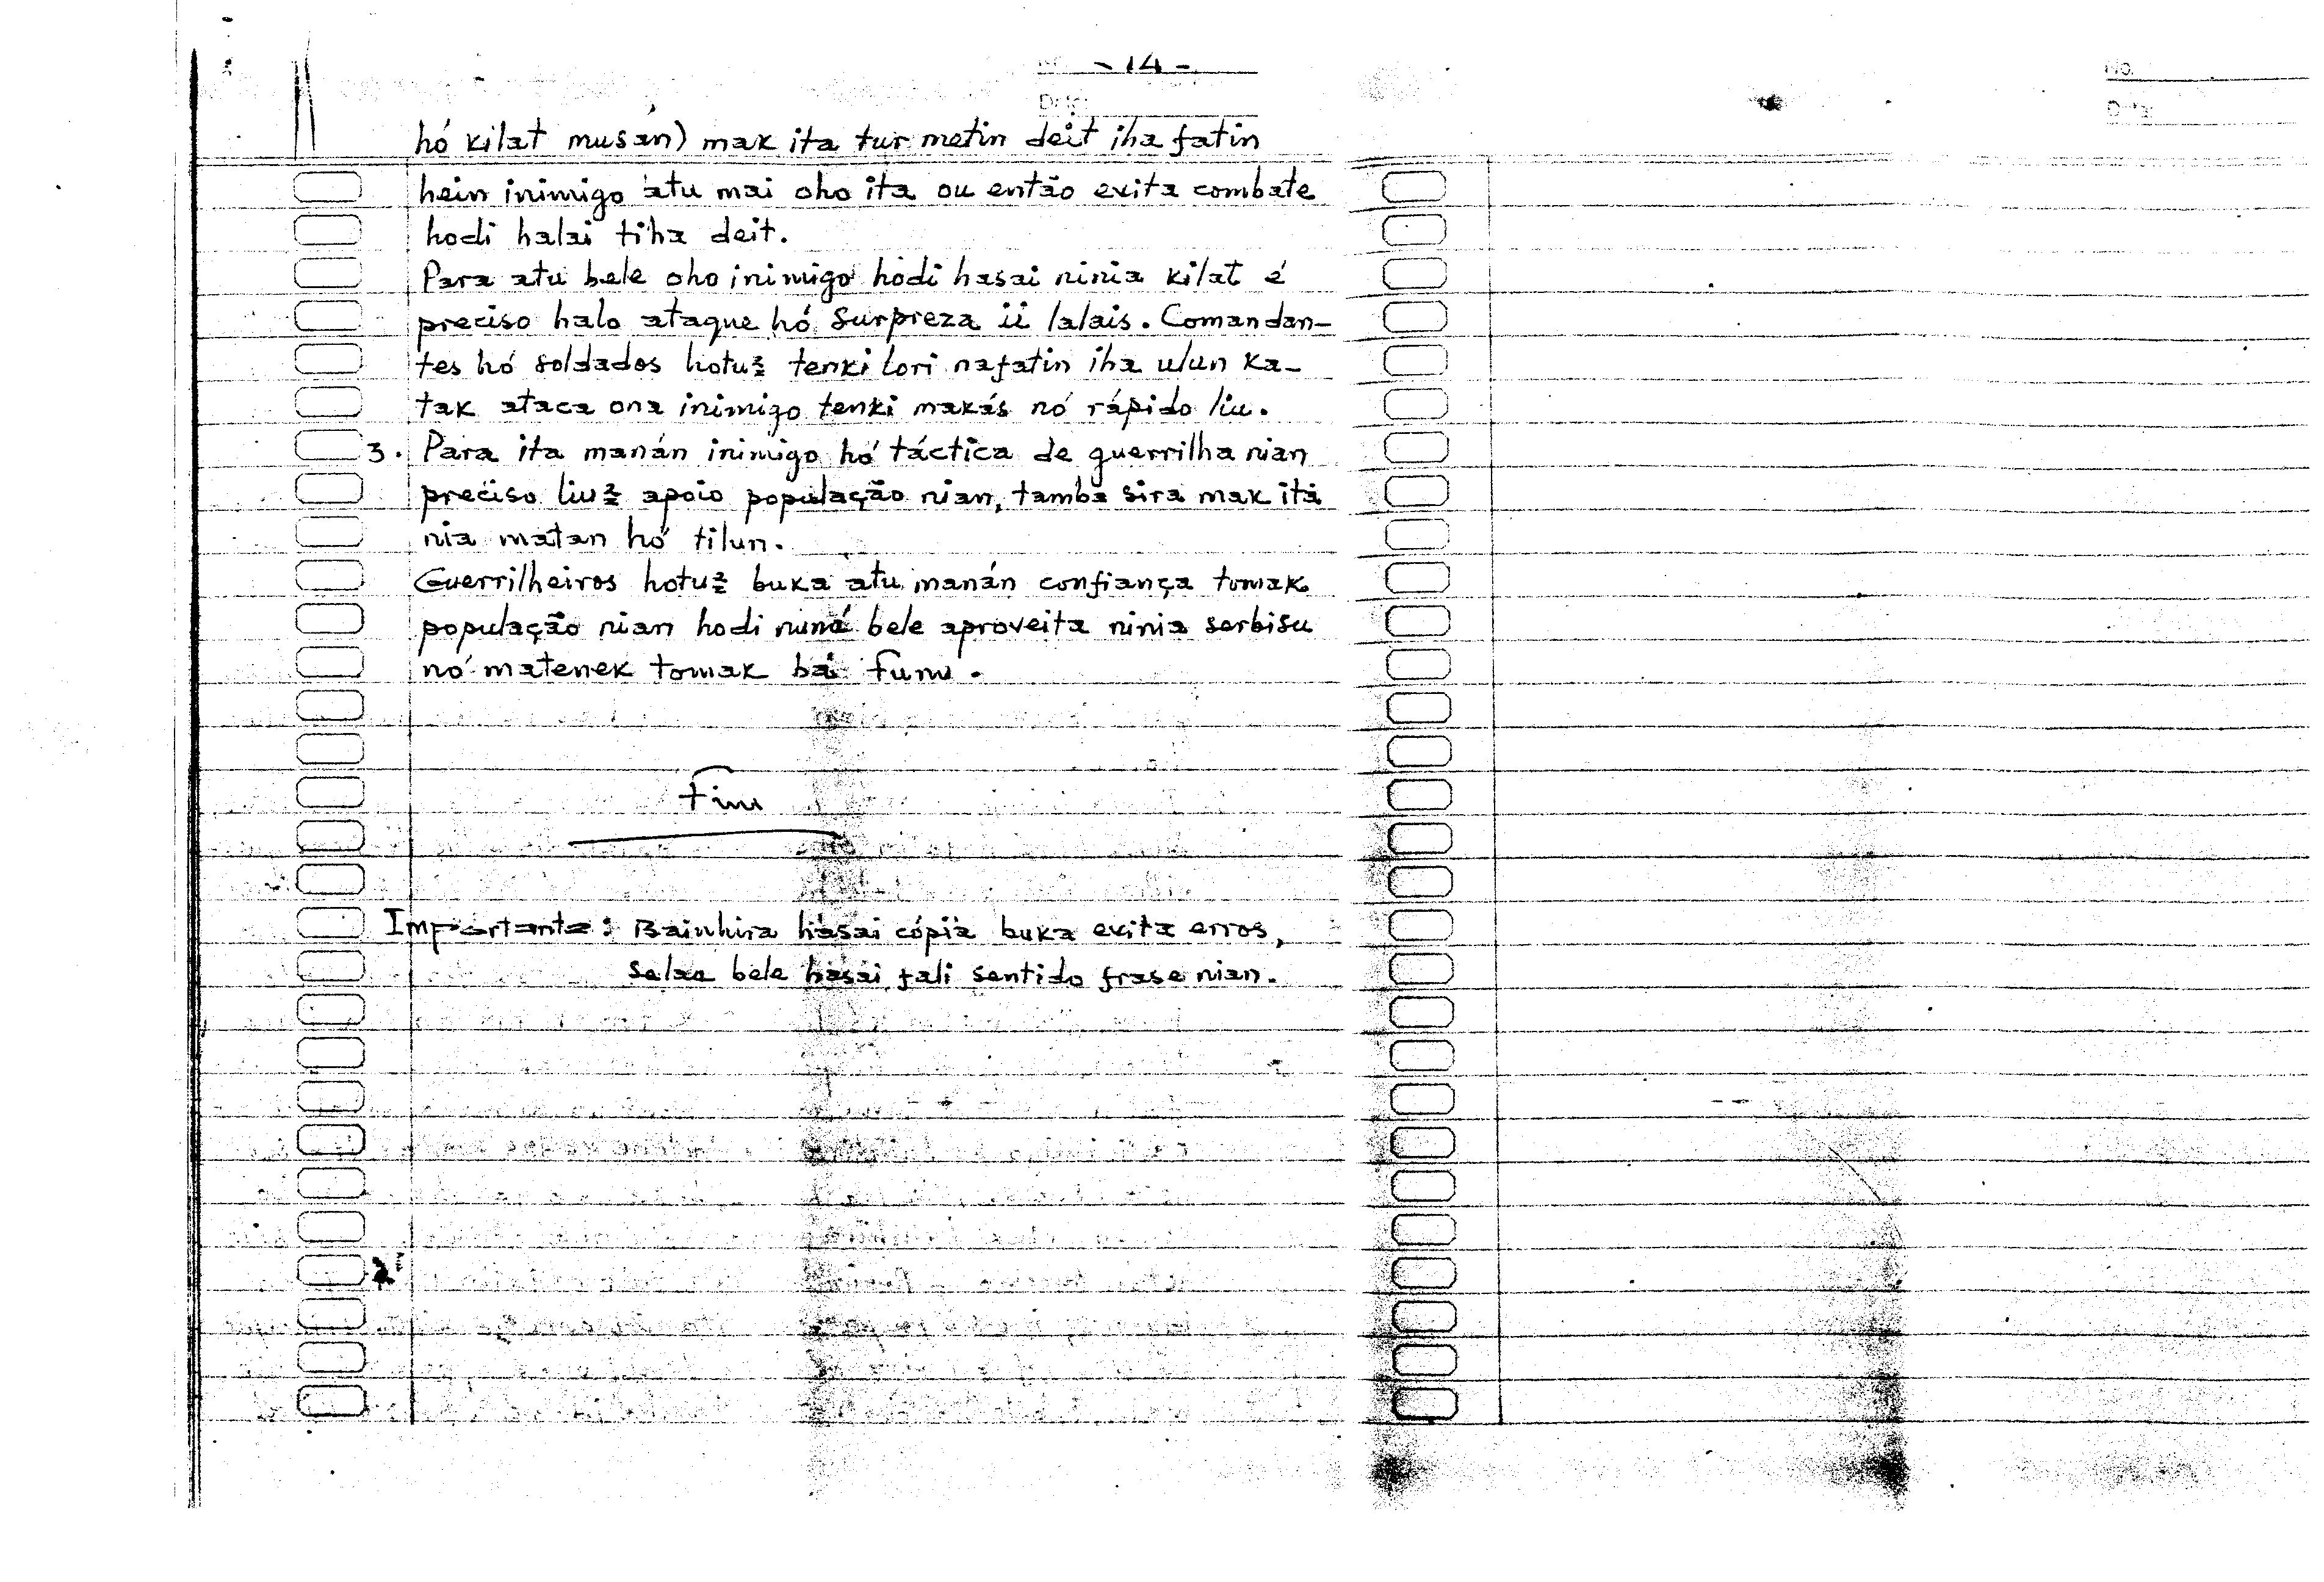 No. - 14 -
Date:
hó kilat musan) mak ita tur metin deit iha fatin
hein inimigo atu mai oho ita ou então evita combate
hodi halai tiha deit.
Para atu bele oho inimigo hodi hasai ninia kilat é
preciso halo ataque hó surpreza ii lalais. Comandan-
tes hó soldados hotu2 tenki lori nafatin iha ulun ka-
tak ataca ona inimigo tenki makás nó rápido liu.
3. Para ita manán inimigo hó táctica de guerrilha nian
preciso liu2 apoio população nian, tamba sira mak ita
nia matan hó tilun.
Guerrilheiros hotu2 buka atu manán confiança tomak
população nian hodi nuné bele aproveita ninia serbisu
nó matenek tomak bá funu.
Fim
Importante: Bainhira hasai cópia buka evita erros,
selae bele hasai fali sentido frase nian.
No.
Date